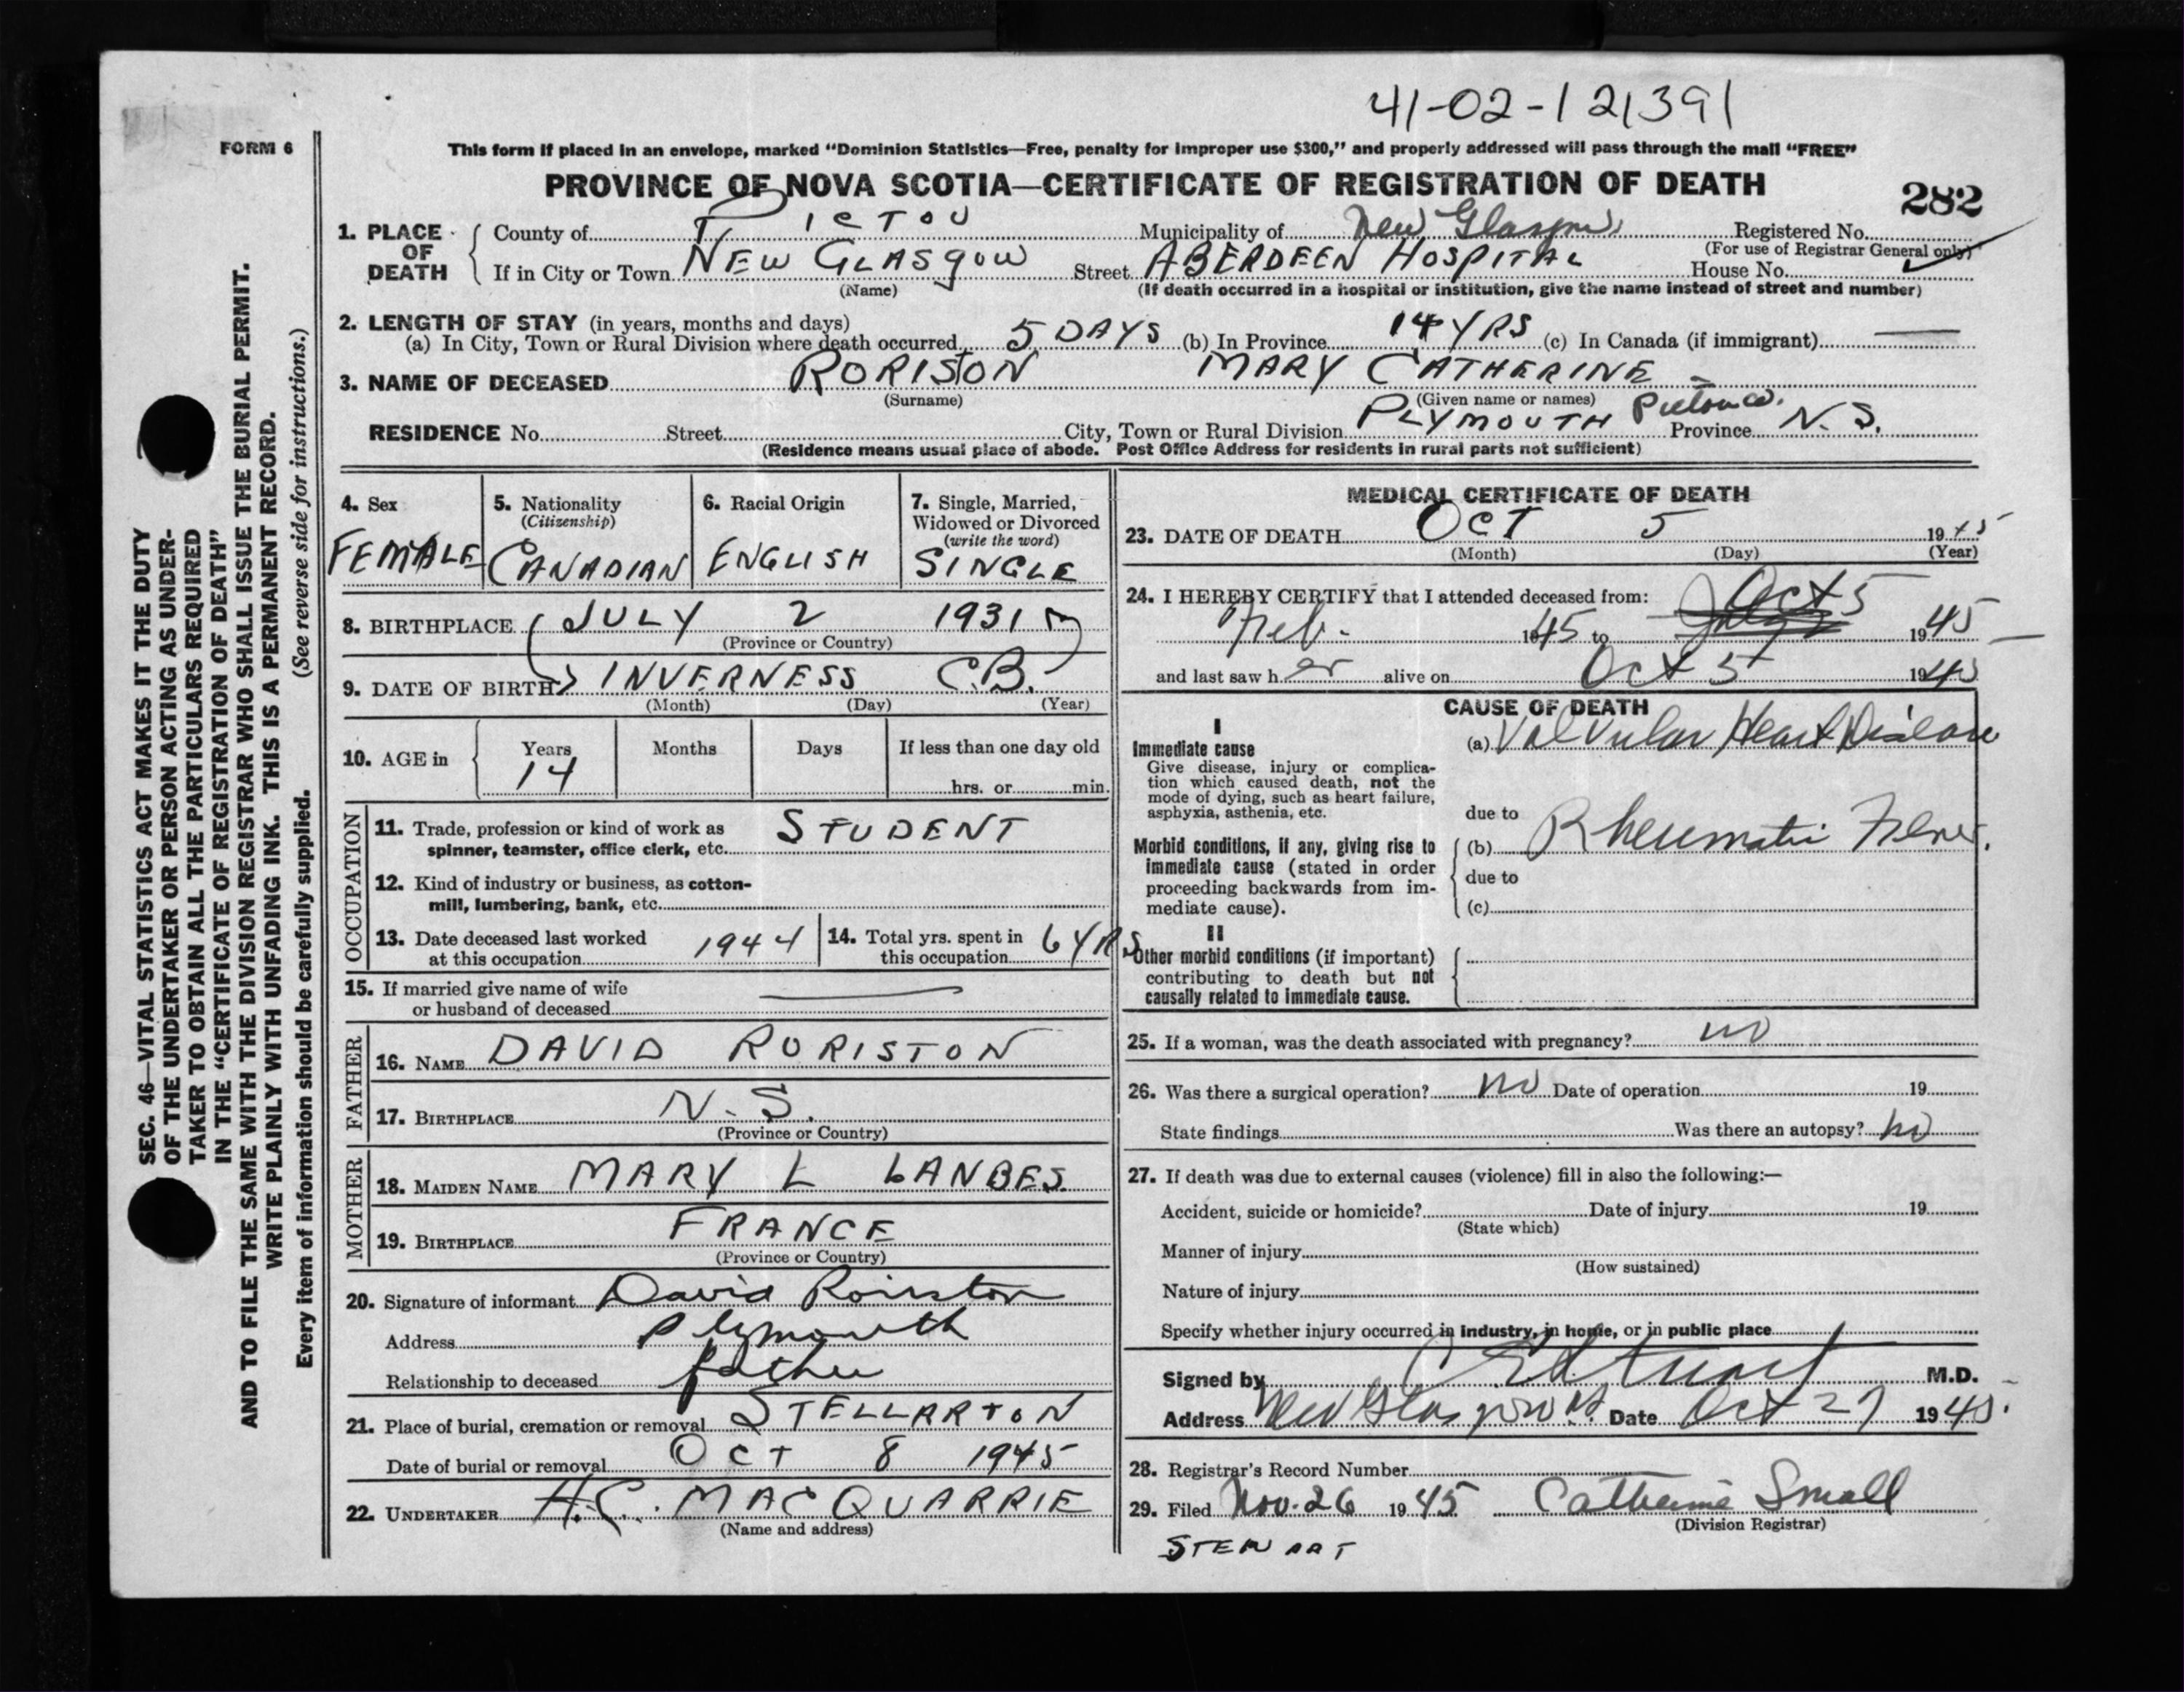 41-02-121391
FORM 6
This form if placed in an envelope, marked "Dominion Statistics—Free, penalty for improper use $300," and properly addressed will pass through the mail "FREE"
PROVINCE OF NOVA SCOTIA—CERTIFICATE OF REGISTRATION OF DEATH
282
1. PLACE OF DEATH
County of PICTOU Municipality of New Glasgow Registered No.
(For use of Registrar General only)
If in City or Town NEW GLASGOW Street ABERDEEN HOSPITAL House No.
(Name) (If death occurred in a hospital or institution, give the name instead of street and number)
2. LENGTH OF STAY (in years, months and days)
(a) In City, Town or Rural Division where death occurred 5 DAYS (b) In Province 14 YRS (c) In Canada (if immigrant) —
3. NAME OF DECEASED RORISTON MARY CATHERINE
(Surname) (Given name or names)
RESIDENCE No. Street City, Town or Rural Division PLYMOUTH Pictou Co. Province N.S.
(Residence means usual place of abode. Post Office Address for residents in rural parts not sufficient)
4. Sex
FEMALE
5. Nationality
(Citizenship)
CANADIAN
6. Racial Origin
ENGLISH
7. Single, Married,
Widowed or Divorced
(write the word)
SINGLE
8. BIRTHPLACE JULY 2 1931
(Province or Country)
9. DATE OF BIRTH INVERNESS C.B.
(Month) (Day) (Year)
10. AGE in
Years Months Days If less than one day old
14 hrs. or min.
OCCUPATION
11. Trade, profession or kind of work as STUDENT
spinner, teamster, office clerk, etc.
12. Kind of industry or business, as cotton-
mill, lumbering, bank, etc.
13. Date deceased last worked
at this occupation 1944
14. Total yrs. spent in
this occupation 6 YRS
15. If married give name of wife
or husband of deceased —
FATHER
16. NAME DAVID RORISTON
17. BIRTHPLACE N.S.
(Province or Country)
MOTHER
18. MAIDEN NAME MARY L LANBES
19. BIRTHPLACE FRANCE
(Province or Country)
20. Signature of informant David Roriston
Address Plymouth
Relationship to deceased father
21. Place of burial, cremation or removal STELLARTON
Date of burial or removal OCT 8 1945
22. UNDERTAKER H.C. MACQUARRIE
(Name and address)
MEDICAL CERTIFICATE OF DEATH
23. DATE OF DEATH OCT 5 1945
(Month) (Day) (Year)
24. I HEREBY CERTIFY that I attended deceased from: Oct 5
Feb. 1945 to 1945
and last saw h er alive on Oct 5 1945
CAUSE OF DEATH
I
Immediate cause
Give disease, injury or complica-
tion which caused death, not the
mode of dying, such as heart failure,
asphyxia, asthenia, etc.
(a) Valvular Heart Disease
due to
Morbid conditions, if any, giving rise to
immediate cause (stated in order
proceeding backwards from im-
mediate cause).
(b) Rheumatic Fever.
due to
(c)
II
Other morbid conditions (if important)
contributing to death but not
causally related to immediate cause.
25. If a woman, was the death associated with pregnancy? no
26. Was there a surgical operation? no Date of operation 19
State findings Was there an autopsy? no
27. If death was due to external causes (violence) fill in also the following:—
Accident, suicide or homicide? Date of injury 19
(State which)
Manner of injury
(How sustained)
Nature of injury
Specify whether injury occurred in industry, in home, or in public place
Signed by M.D.
Address New Glasgow N.S. Date Oct 27 1945.
28. Registrar's Record Number
29. Filed Nov. 26 1945 Catherine Small
(Division Registrar)
STEWART
SEC. 46—VITAL STATISTICS ACT MAKES IT THE DUTY
OF THE UNDERTAKER OR PERSON ACTING AS UNDER-
TAKER TO OBTAIN ALL THE PARTICULARS REQUIRED
IN THE "CERTIFICATE OF REGISTRATION OF DEATH"
AND TO FILE THE SAME WITH THE DIVISION REGISTRAR WHO SHALL ISSUE THE BURIAL PERMIT.
WRITE PLAINLY WITH UNFADING INK. THIS IS A PERMANENT RECORD.
Every item of information should be carefully supplied. (See reverse side for instructions.)